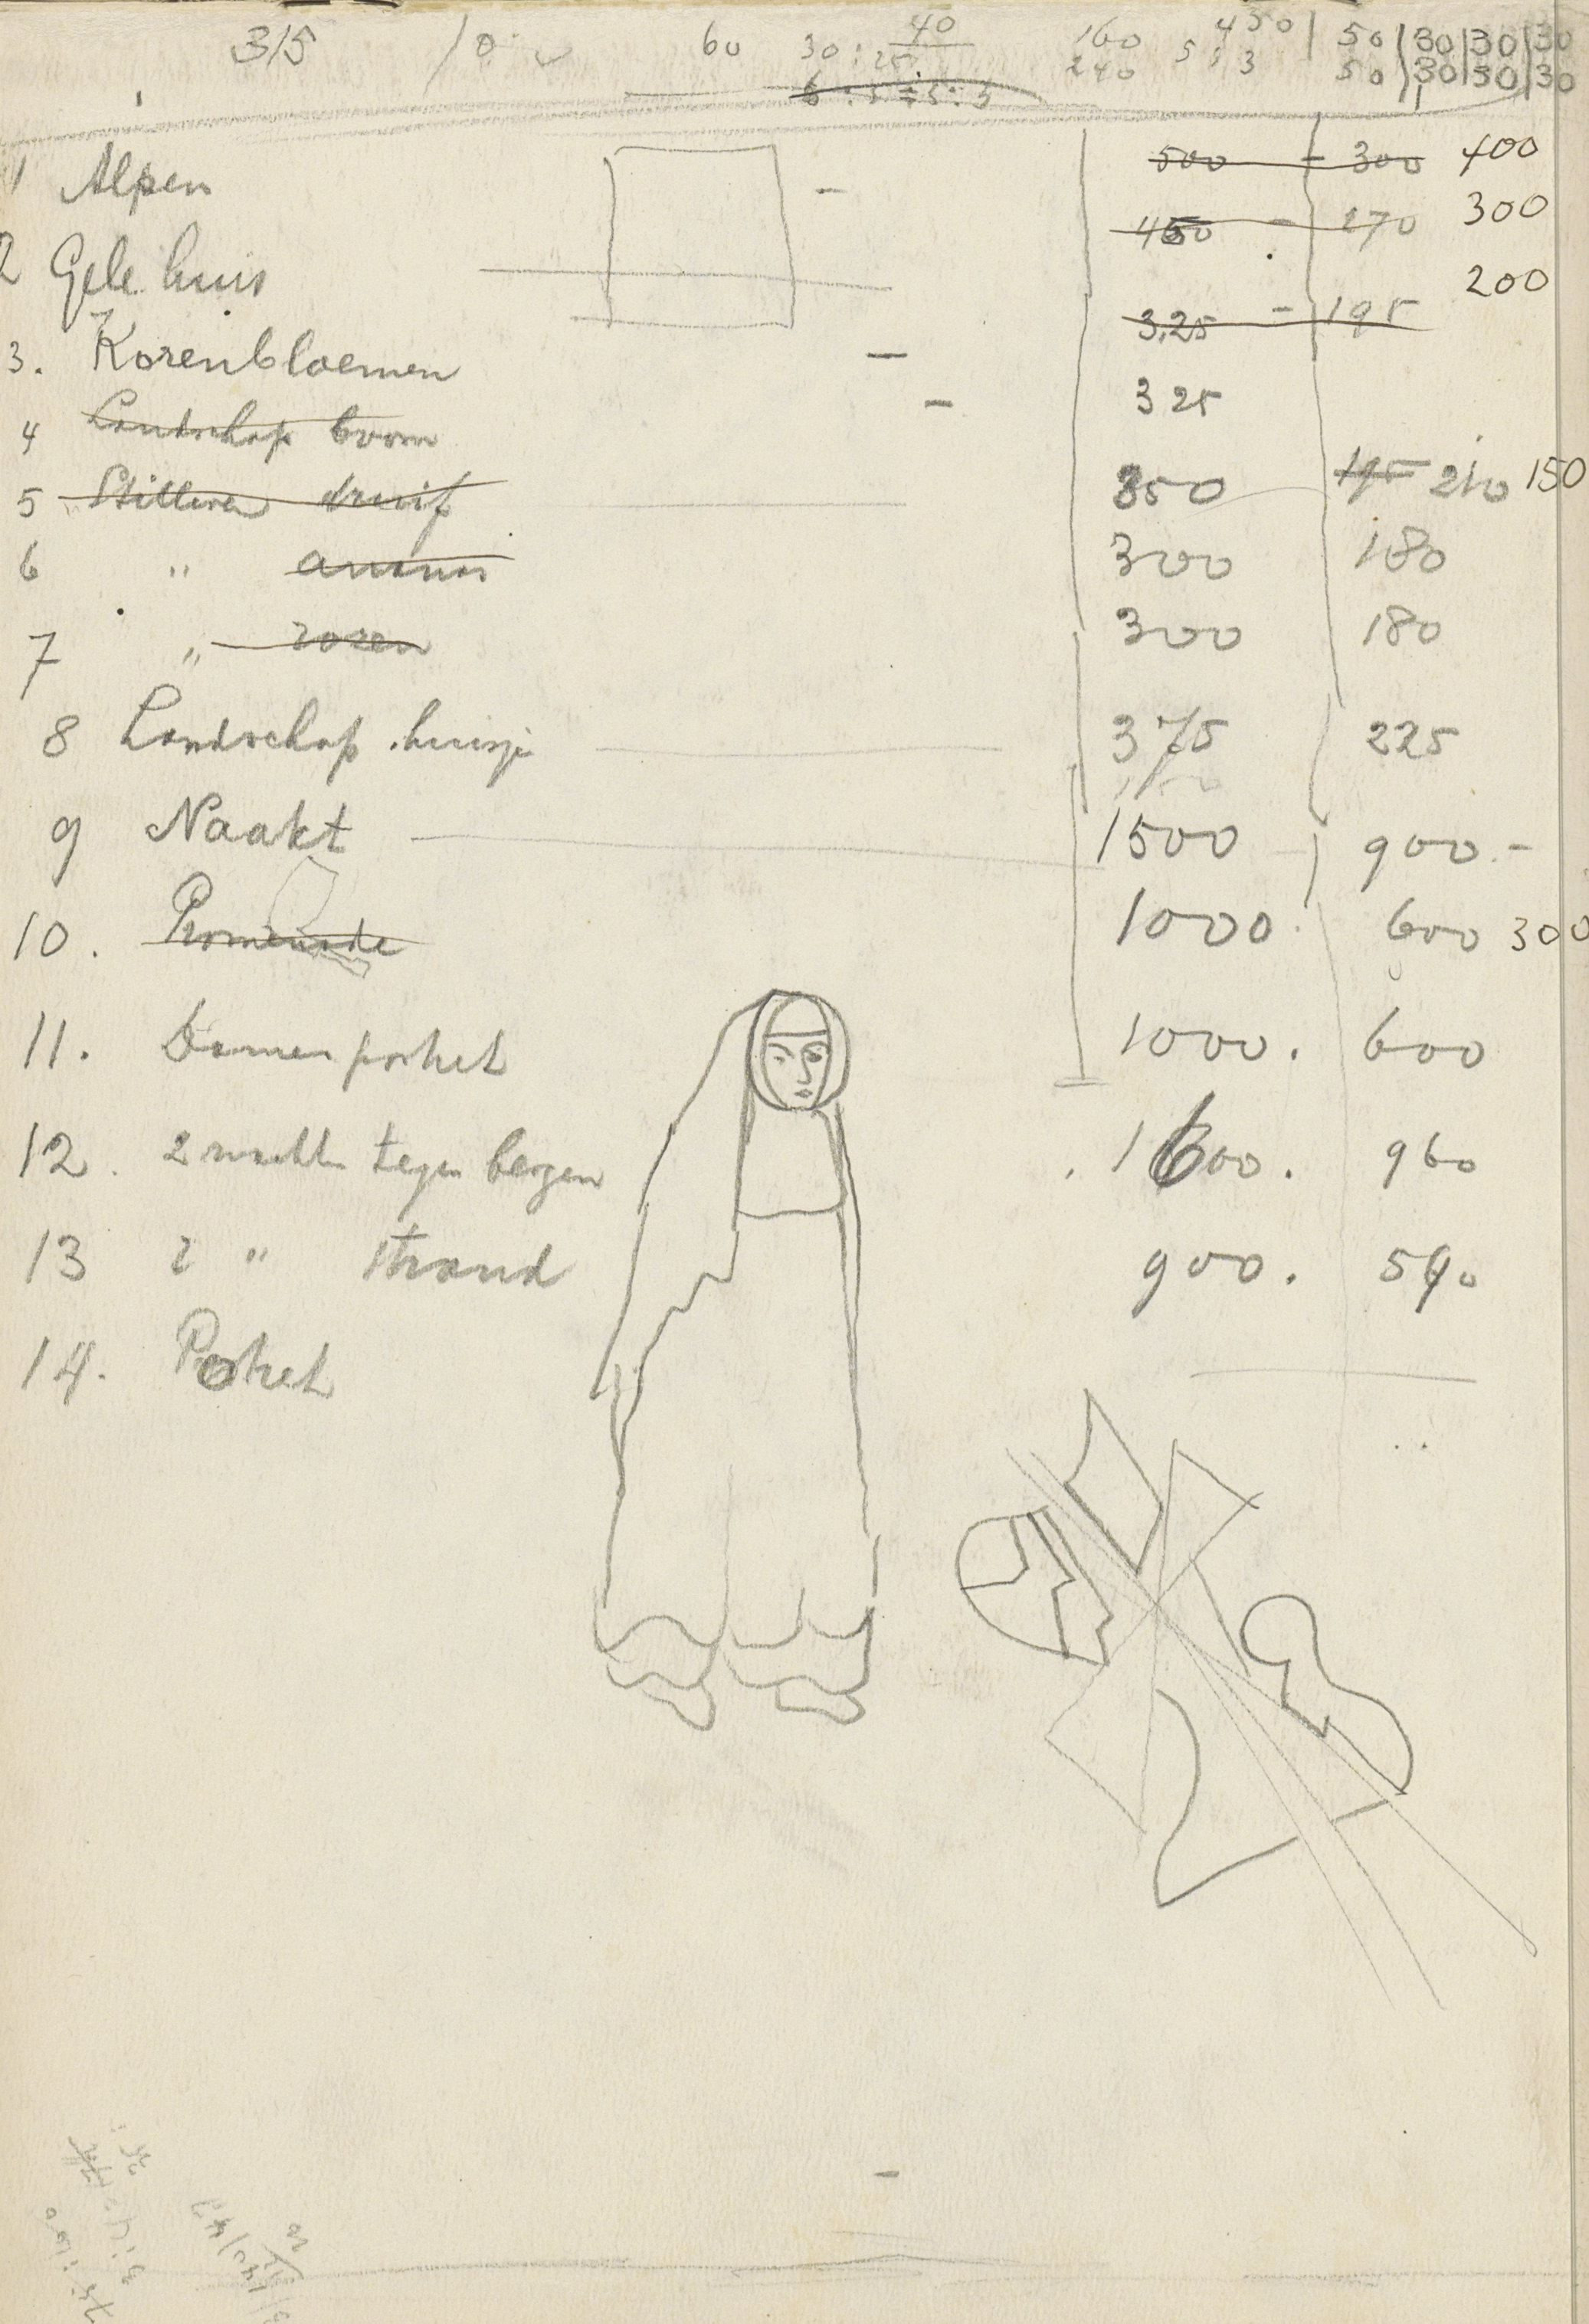 315 10 60 30 : 25 40 160 450 | 50 | 30 | 30 | 30
240 5 : 3 50 | 30 | 30 | 30
6 : 5 = 5 : 3
1 Alpen 500 - 300 400
2 Gele huis 450 - 270 300
3. Korenbloemen 3.25 - 195 200
4 Landschap boom 325
5 Stilleven druif 350 195 210 150
6 " ananas 300 180
7 " rozen 300 180
8 Landschap huisje 375 225
9 Naakt 1500 900.-
10. Promenade 1000 600 300
11. Damesportret 1000. 600
12. 2 naakten tegen bergen 1600. 960
13 2 " strand 900. 540
14. Portret